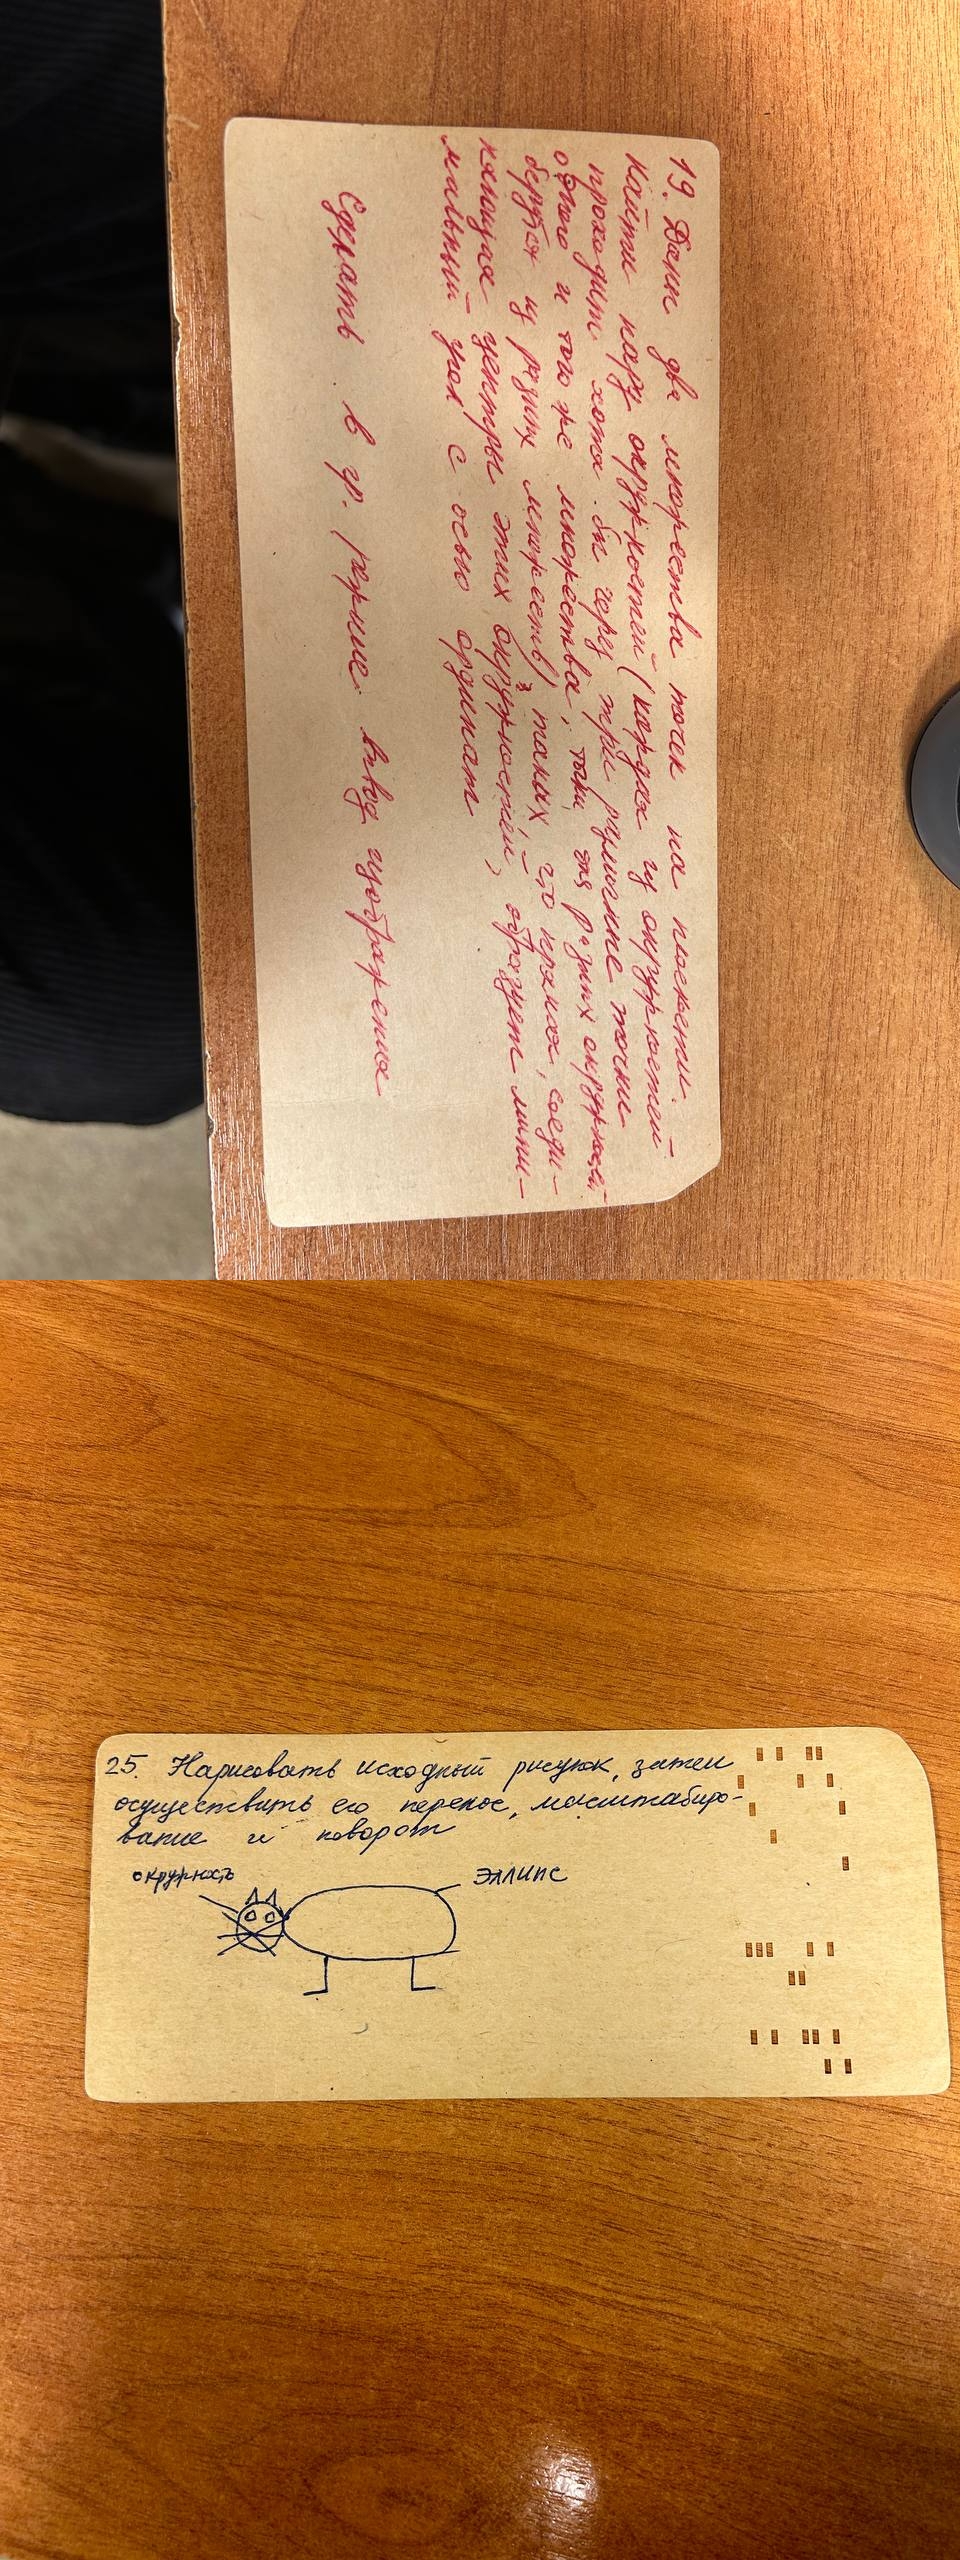 19. Даны два множества точек на плоскости.
Найти пару окружностей (каждая из окружностей
проходит хотя бы через три различные точки
одного и того же множества, точки для разных окружностей
берутся из разных множеств) таких, что прямая, соеди-
няющая центры этих окружностей, образует мини-
мальный угол с осью ординат
Сделать в гр. режиме вывод изображения
25. Нарисовать исходный рисунок, затем
осуществить его перенос, масштабиро-
вание и поворот
окружность
эллипс